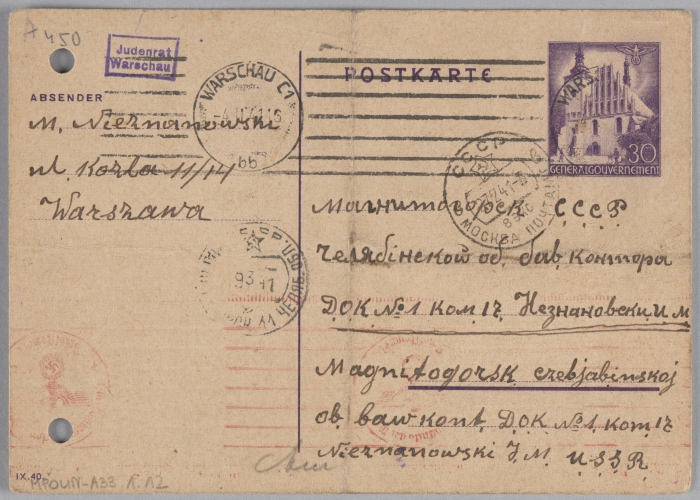 A 450
Judenrat
Warschau
WARSCHAU C1
POSTKARTE
ABSENDER
M. Nieznanowski
ul. Kozla 11/14
Warszawa
30
GENERALGOUVERNEMENT
СССР
МОСКВА ПОЧТАМТ
Магнитогорск СССР
Челябінской об. бав контора
ДОК №1 ком 17 Незнановски И М
Magnitogorsk czebjabinskoj
ob baw kont ДОК №1 kom 17
Nieznanowski J M USSR
IX.40.
MPOLIN-A33.1.12